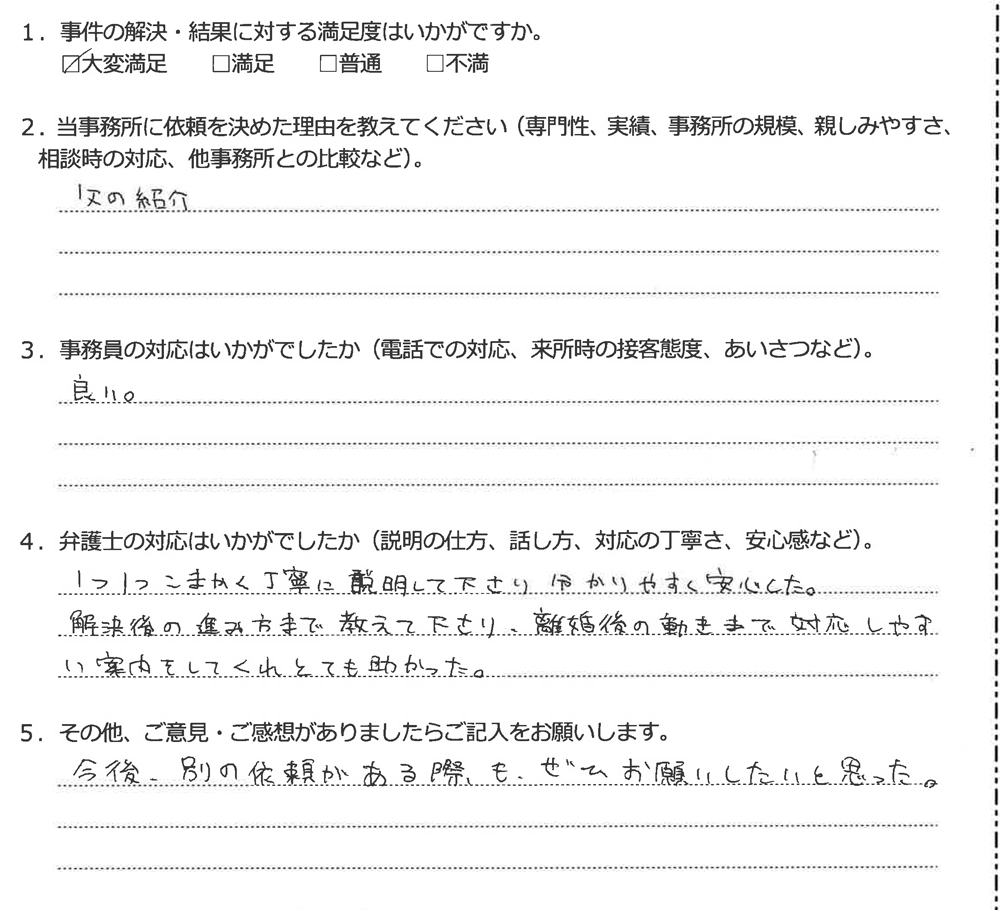 1．事件の解決・結果に対する満足度はいかがですか。
☑大変満足　□満足　□普通　□不満
2．当事務所に依頼を決めた理由を教えてください（専門性、実績、事務所の規模、親しみやすさ、
相談時の対応、他事務所との比較など）。
父の紹介
3．事務員の対応はいかがでしたか（電話での対応、来所時の接客態度、あいさつなど）。
良い。
4．弁護士の対応はいかがでしたか（説明の仕方、話し方、対応の丁寧さ、安心感など）。
1つ1つこまかく丁寧に説明して下さり分かりやすく安心した。
解決後の進み方まで教えて下さり、離婚後の動きまで対応しやす
い案内をしてくれとても助かった。
5．その他、ご意見・ご感想がありましたらご記入をお願いします。
今後、別の依頼がある際も、ぜひお願いしたいと思った。